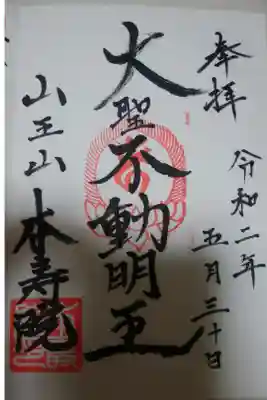 奉拝
令和二年
五月三十日
大聖不動明王
山王山
本寿院